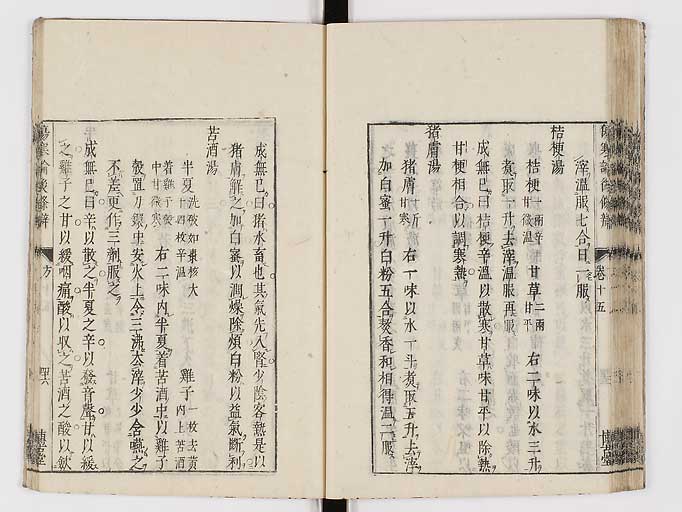 滓溫服七合日二服
桔梗湯
桔梗一兩辛甘微溫 甘草二兩甘平 右二味以水三升
煮取一升去滓溫服再服
成無已曰桔梗辛溫以散寒甘草味甘平以除熱
甘梗相合以調寒熱
猪膚湯
猪膚一斤甘寒 右一味以水一斗煮取五升去滓
加白蜜一升白粉五合熬香和相得溫二服
成無已曰猪水畜也其氣先入腎少陰客熱是以
猪膚解之加白蜜以潤燥除煩白粉以益氣斷利
苦酒湯
半夏洗破如棗核大十四枚辛溫 雞子一枚去黃內上苦酒
着雞子殼中甘微寒 右二味內半夏着苦酒中以雞子
殼置刀鐶中安火上令三沸去滓少少含嚥之
不差更作三劑服之
成無已曰辛以散之半夏之辛以發音聲甘以緩
之雞子之甘以緩咽痛酸以收之苦酒之酸以歛
卷十五
傷寒論後條辨
方
博古堂